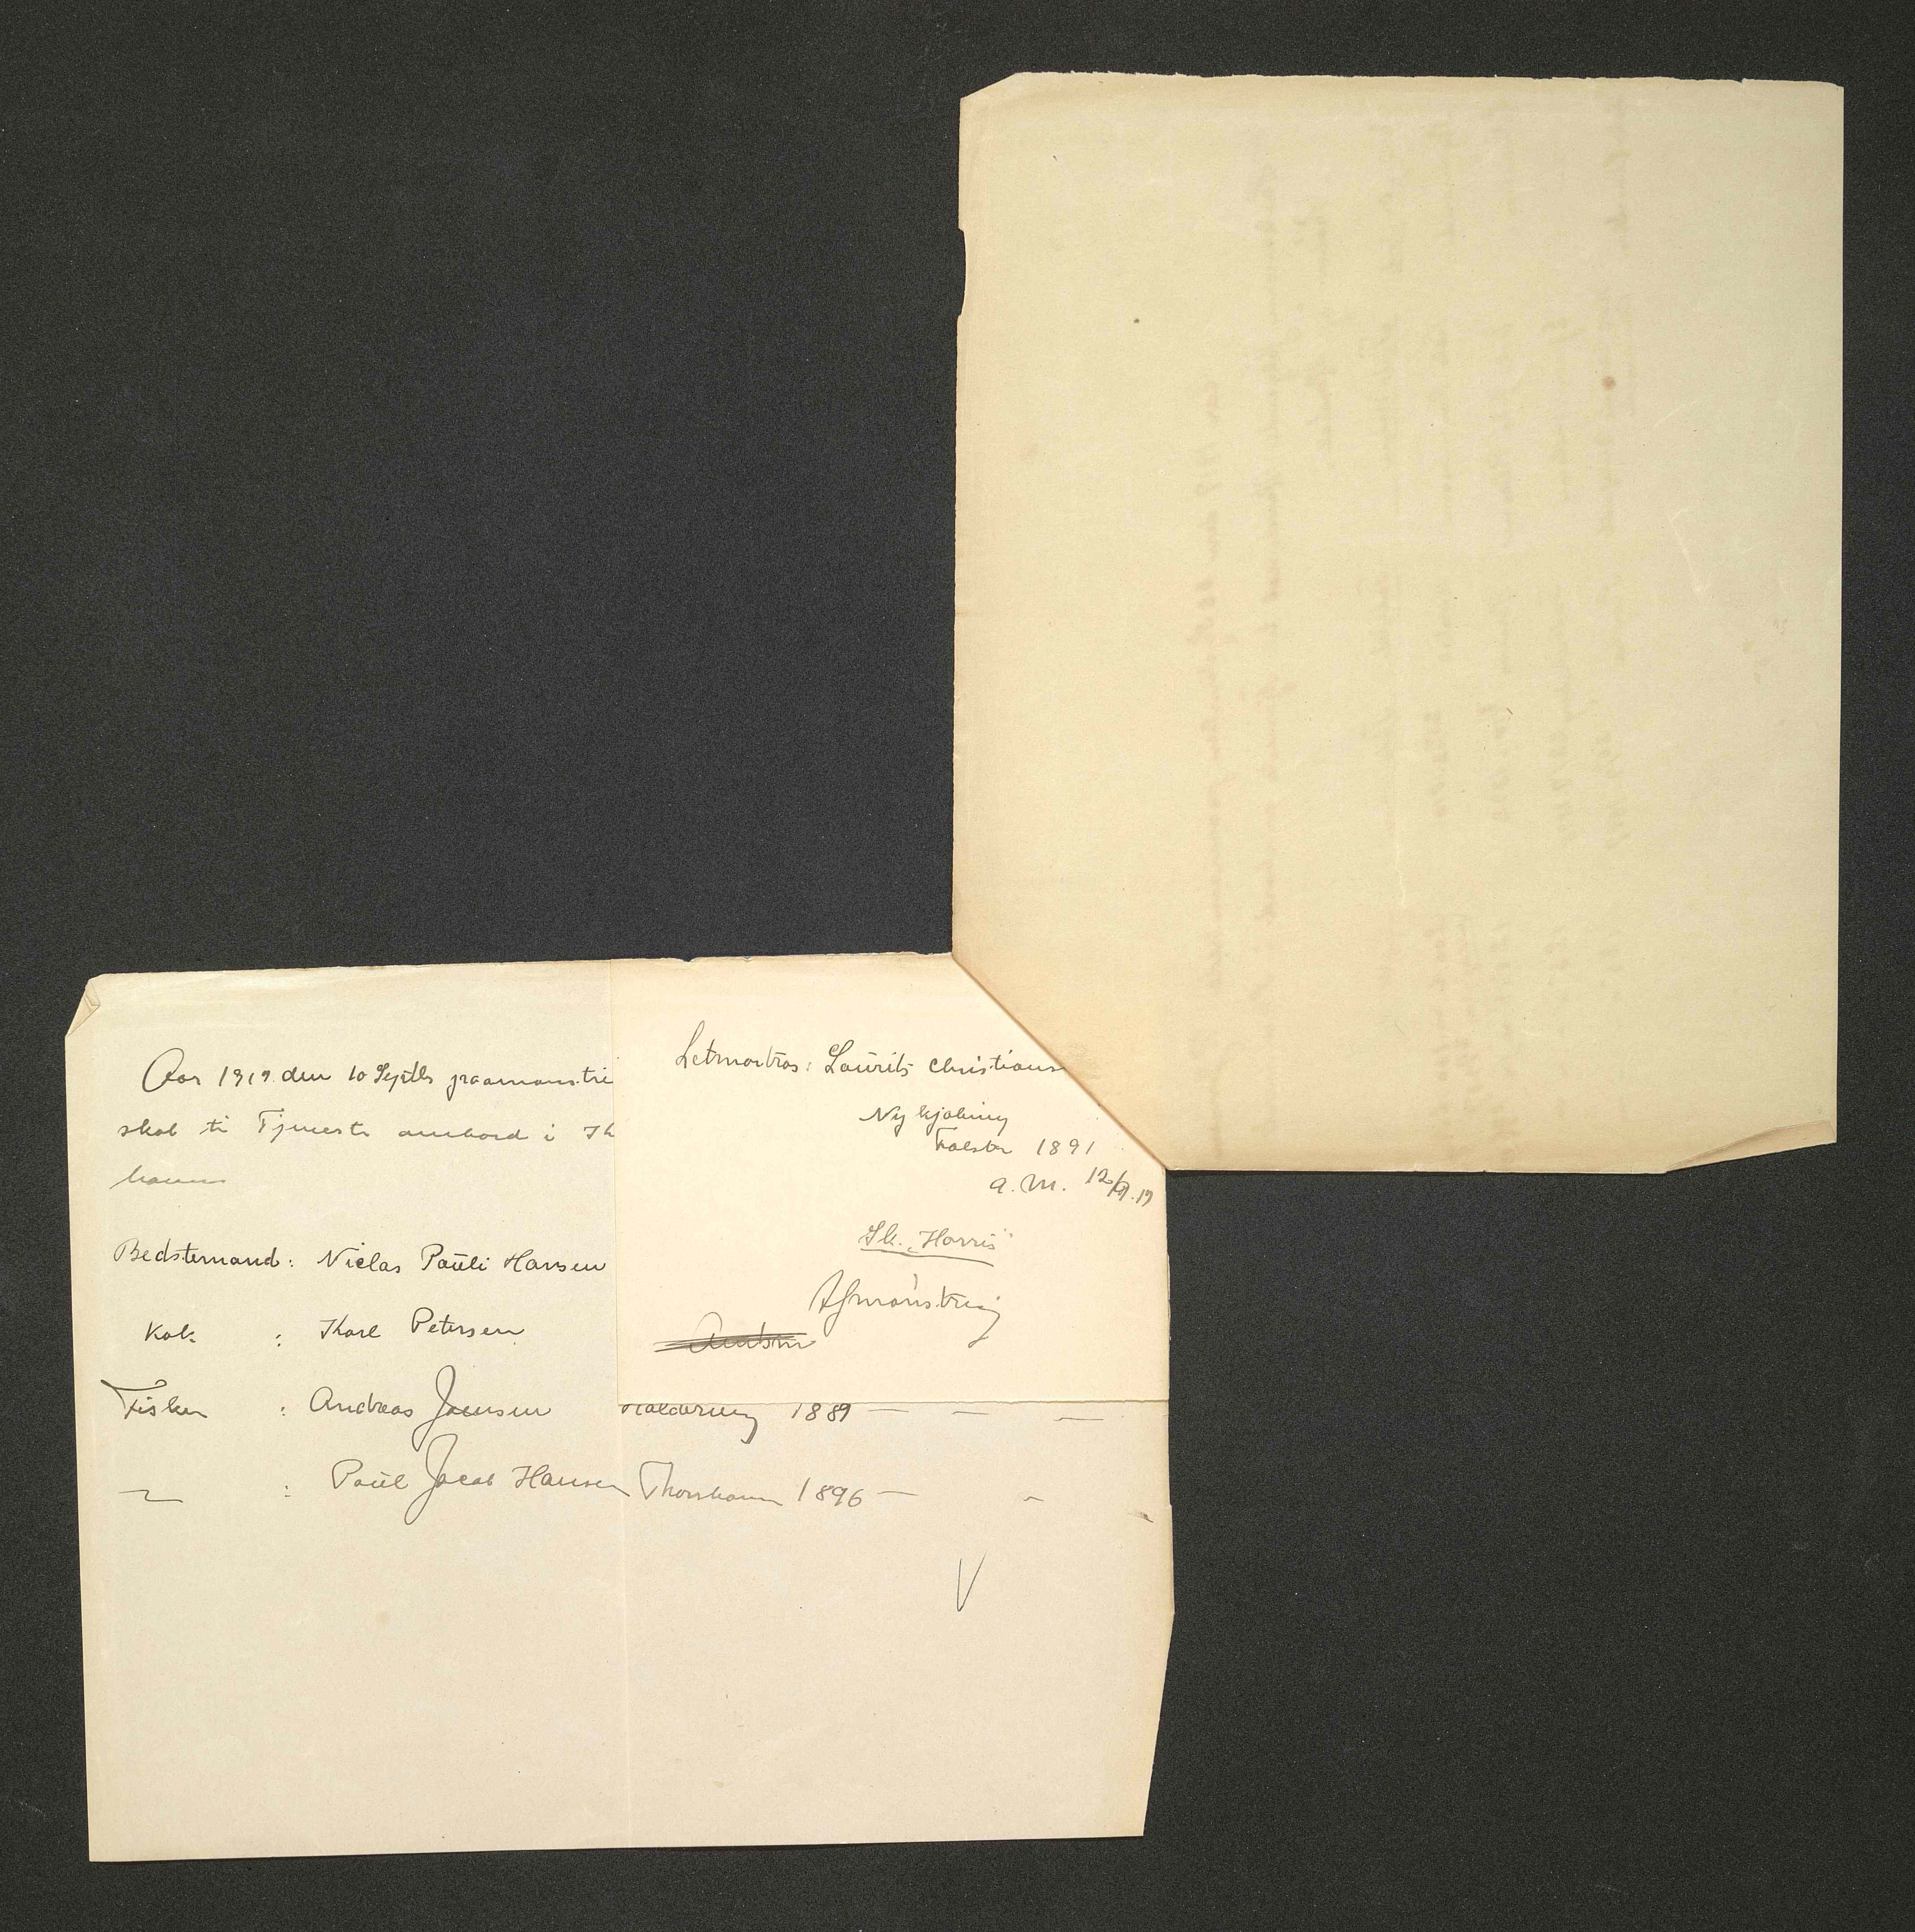 Aar 1919 den 10 Septbr paamonstre
skab til Tjeneste ombord i Sk
havn
Bedstemand: Niclas Pauli Hansen
Kok : Karl Petersen
Fisker : Andreas Joensen Haldersvig 1889 — — —
— : Paul Jacob Hansen Thorshavn 1896 — —
V
Letmatros: Laurits Christians
Nykjøbing
Falster 1891
a. M. 12/9.19
Sk. "Harris"
Afmønstring